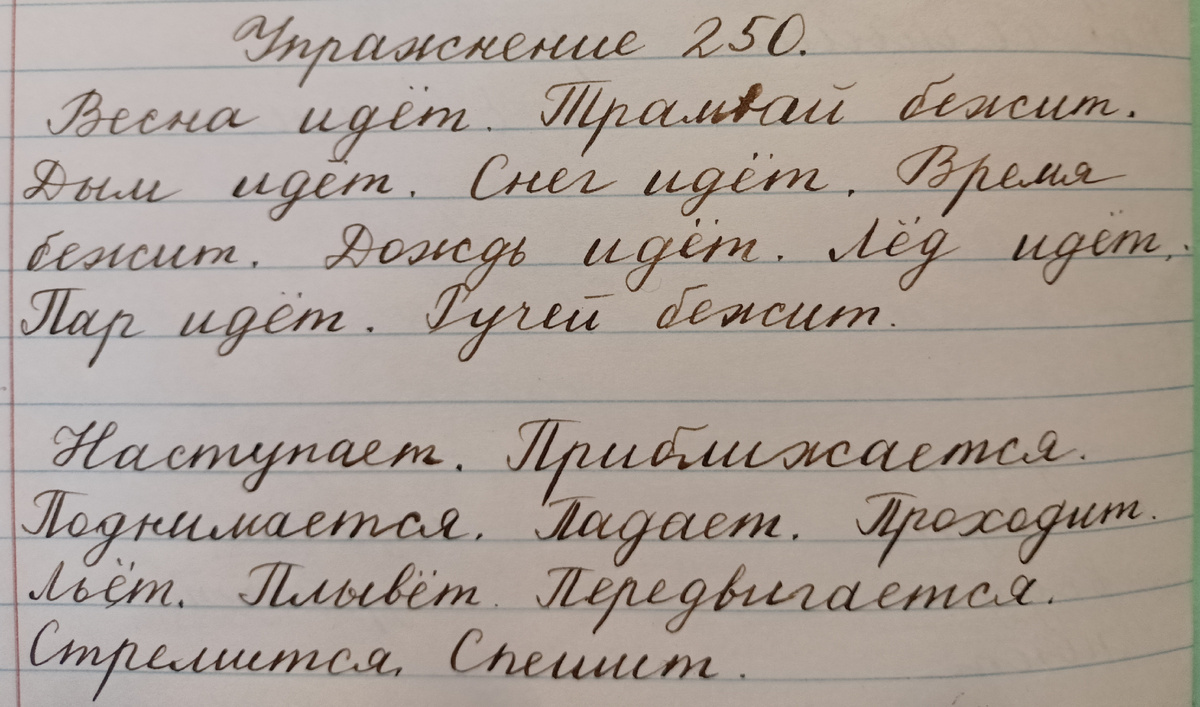 Упражнение 250.
Весна идёт. Трамвай бежит.
Дым идёт. Снег идёт. Время
бежит. Дождь идёт. Лёд идёт.
Пар идёт. Ручей бежит.
Наступает. Приближается.
Поднимается. Падает. Проходит.
Льёт. Плывёт. Передвигается.
Стремится. Спешит.